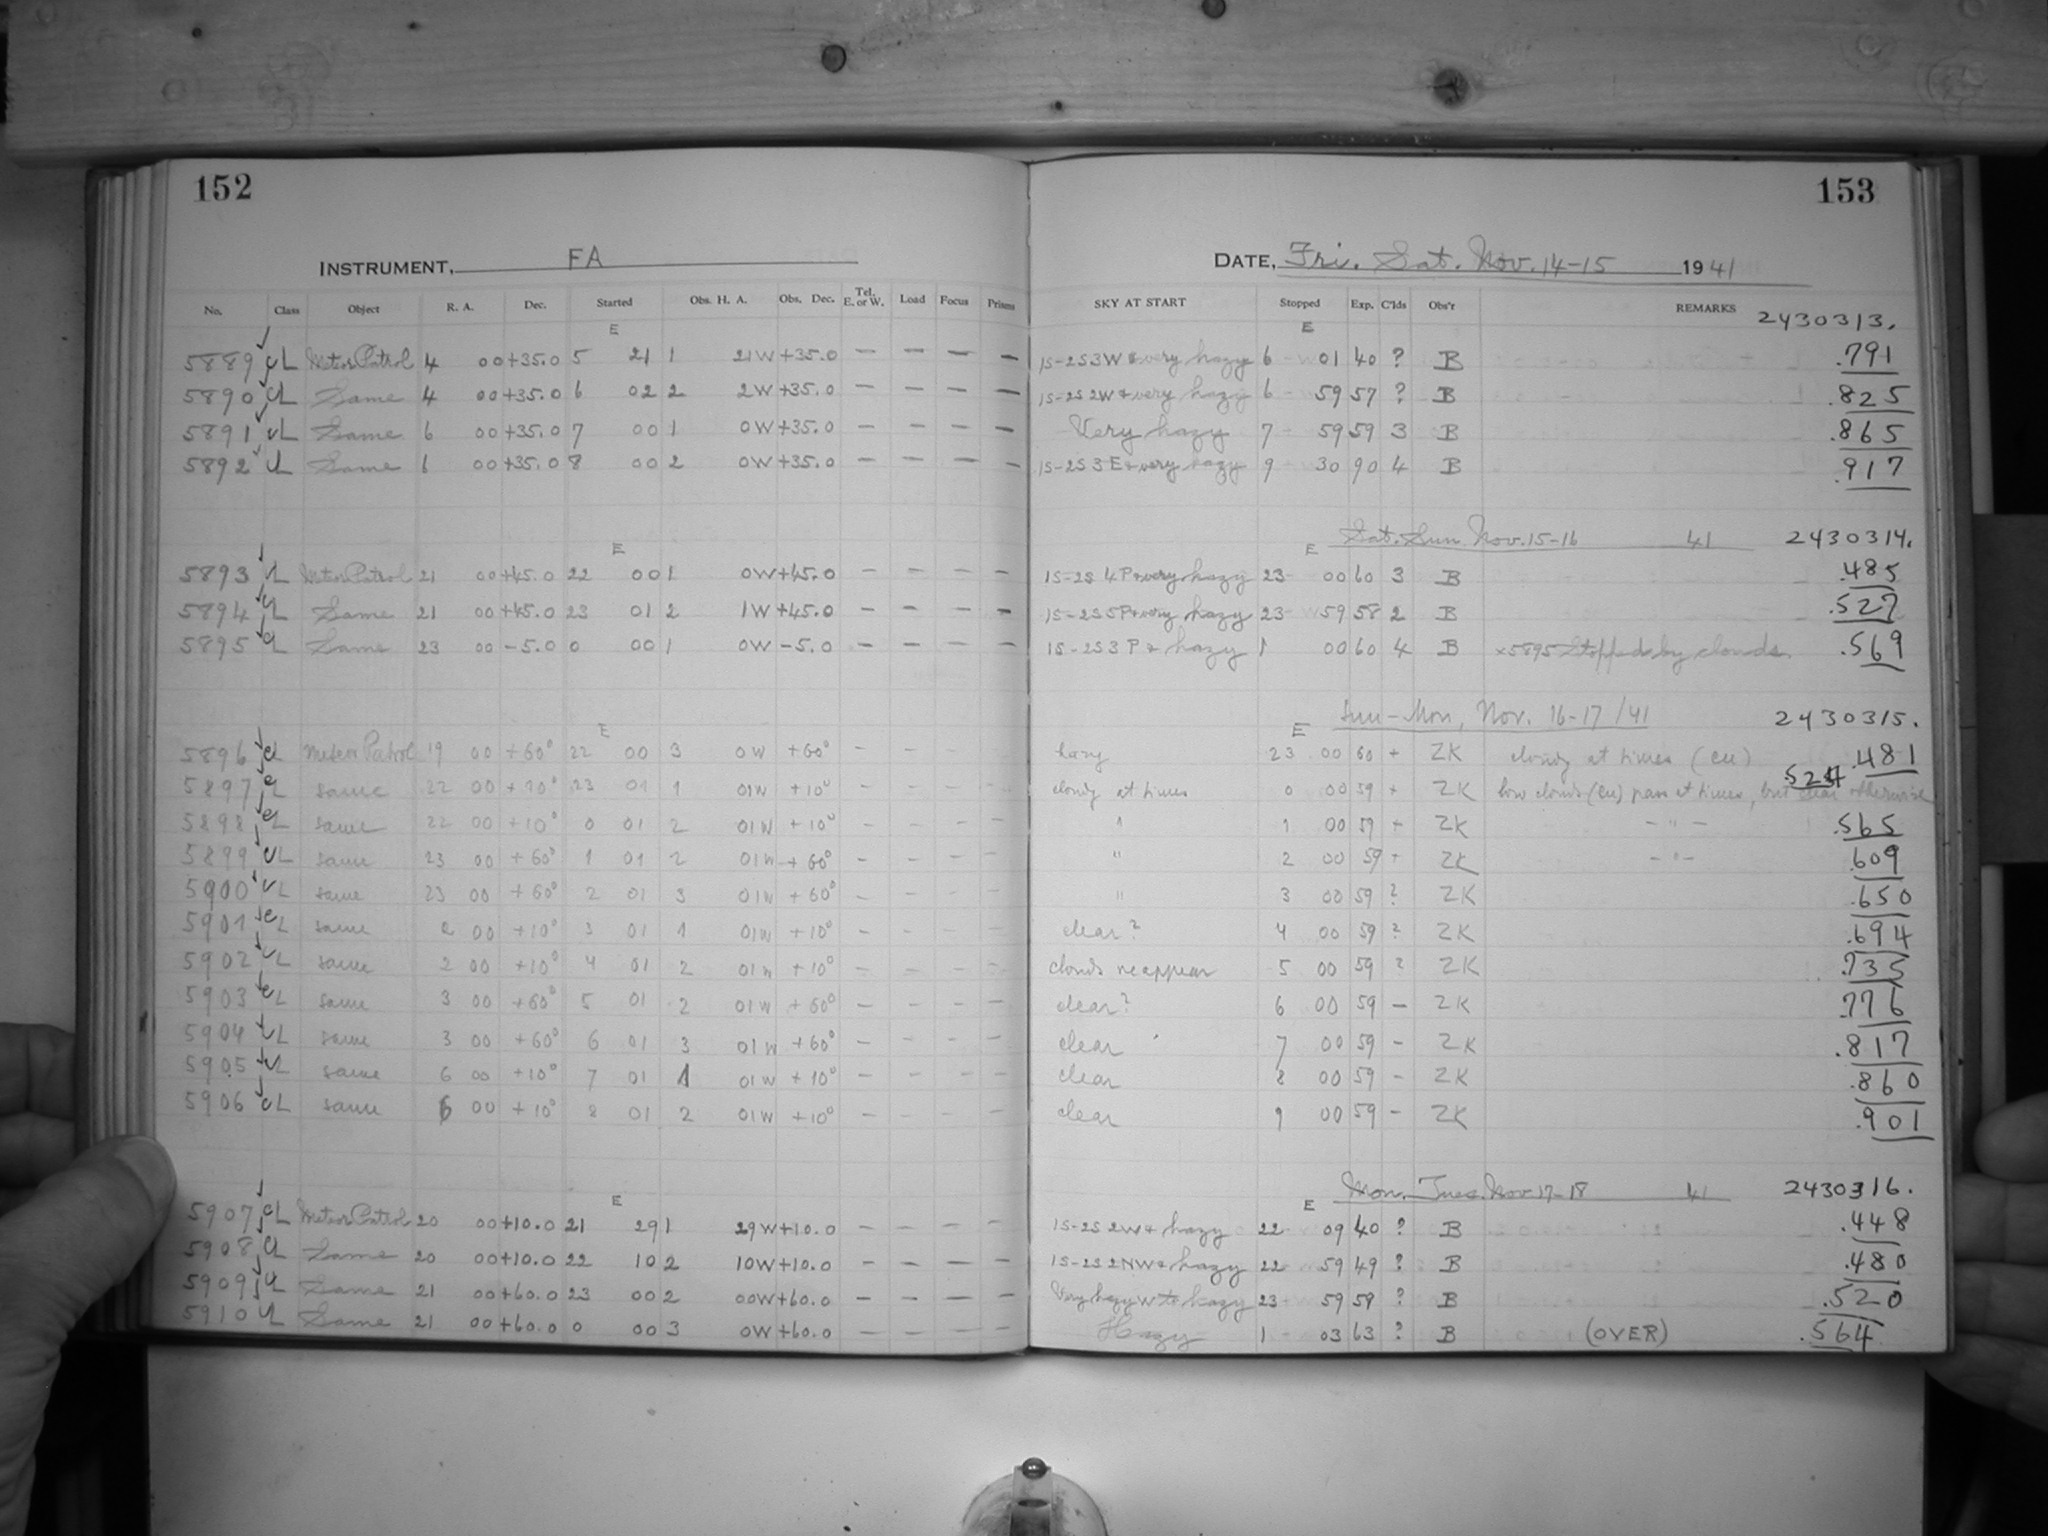 152
INSTRUMENT, FA
No. Class Object R. A. Dec. Started Obs. H. A. Obs. Dec. Tel. E. or W. Load Focus Prisms
E
5889 L Meteor Patrol 4 00 +35.0 5 21 1 21W +35.0 — — — —
5890 L Same 4 00 +35.0 6 02 2 2W +35.0 — — — —
5891 L Same 6 00 +35.0 7 00 1 0W +35.0 — — — —
5892 L Same 6 00 +35.0 8 00 2 0W +35.0 — — — —
E
5893 L Meteor Patrol 21 00 +45.0 22 00 1 0W +45.0 — — — —
5894 L Same 21 00 +45.0 23 01 2 1W +45.0 — — — —
5895 L Same 23 00 -5.0 0 00 1 0W -5.0 — — — —
E
5896 L Meteor Patrol 19 00 +60° 22 00 3 0W +60° - - - -
5897 L same 22 00 +10° 23 01 1 01W +10° - - - -
5898 L same 22 00 +10° 0 01 2 01W +10° - - - -
5899 L same 23 00 +60° 1 01 2 01W +60° - - - -
5900 L same 23 00 +60° 2 01 3 01W +60° - - - -
5901 L same 2 00 +10° 3 01 1 01W +10° - - - -
5902 L same 2 00 +10° 4 01 2 01W +10° - - - -
5903 L same 3 00 +60° 5 01 2 01W +60° - - - -
5904 L same 3 00 +60° 6 01 3 01W +60° - - - -
5905 L same 6 00 +10° 7 01 1 01W +10° - - - -
5906 L same 6 00 +10° 8 01 2 01W +10° - - - -
E
5907 L Meteor Patrol 20 00 +10.0 21 29 1 29W +10.0 — — — —
5908 L Same 20 00 +10.0 22 10 2 10W +10.0 — — — —
5909 L Same 21 00 +60.0 23 00 2 00W +60.0 — — — —
5910 L Same 21 00 +60.0 0 00 3 0W +60.0 — — — —
153
DATE, Fri. Sat. Nov. 14-15 1941
SKY AT START Stopped Exp. C'lds Obs'r REMARKS
E 2430313.
1S-2S3W & very hazy 6 01 40 ? B .791
1S-2S 2W & very hazy 6 59 57 ? B .825
Very hazy 7 59 59 3 B .865
1S-2S 3E & very hazy 9 30 90 4 B .917
E Sat. Sun. Nov. 15-16 41 2430314.
1S-2S 4P & very hazy 23 00 60 3 B .485
1S-2S5P & very hazy 23 59 58 2 B .527
1S-2S3P & hazy 1 00 60 4 B ×5895 Stopped by clouds. .569
E Sun-Mon, Nov. 16-17/41 2430315.
hazy 23 00 60 + ZK cloudy at times (cu) .481
cloudy at times 0 00 59 + ZK low clouds (cu) pass at times, but clear otherwise .524
" 1 00 59 + ZK — " — .565
" 2 00 59 + ZK — " — .609
" 3 00 59 ? ZK .650
clear? 4 00 59 ? ZK .694
clouds reappear 5 00 59 ? ZK .735
clear? 6 00 59 — ZK .776
clear 7 00 59 - ZK .817
clear 8 00 59 - ZK .860
clear 9 00 59 - ZK .901
E Mon. Tues. Nov. 17-18 41 2430316.
1S-2S 2W & hazy 22 09 40 ? B .448
1S-2S 2NW & hazy 22 59 49 ? B .480
Very hazy W to hazy 23 59 59 ? B .520
Hazy 1 03 63 ? B (OVER) .564